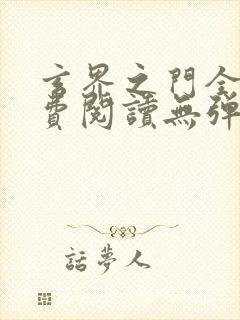 玄界之門全
費閱讀無彈
話夢人